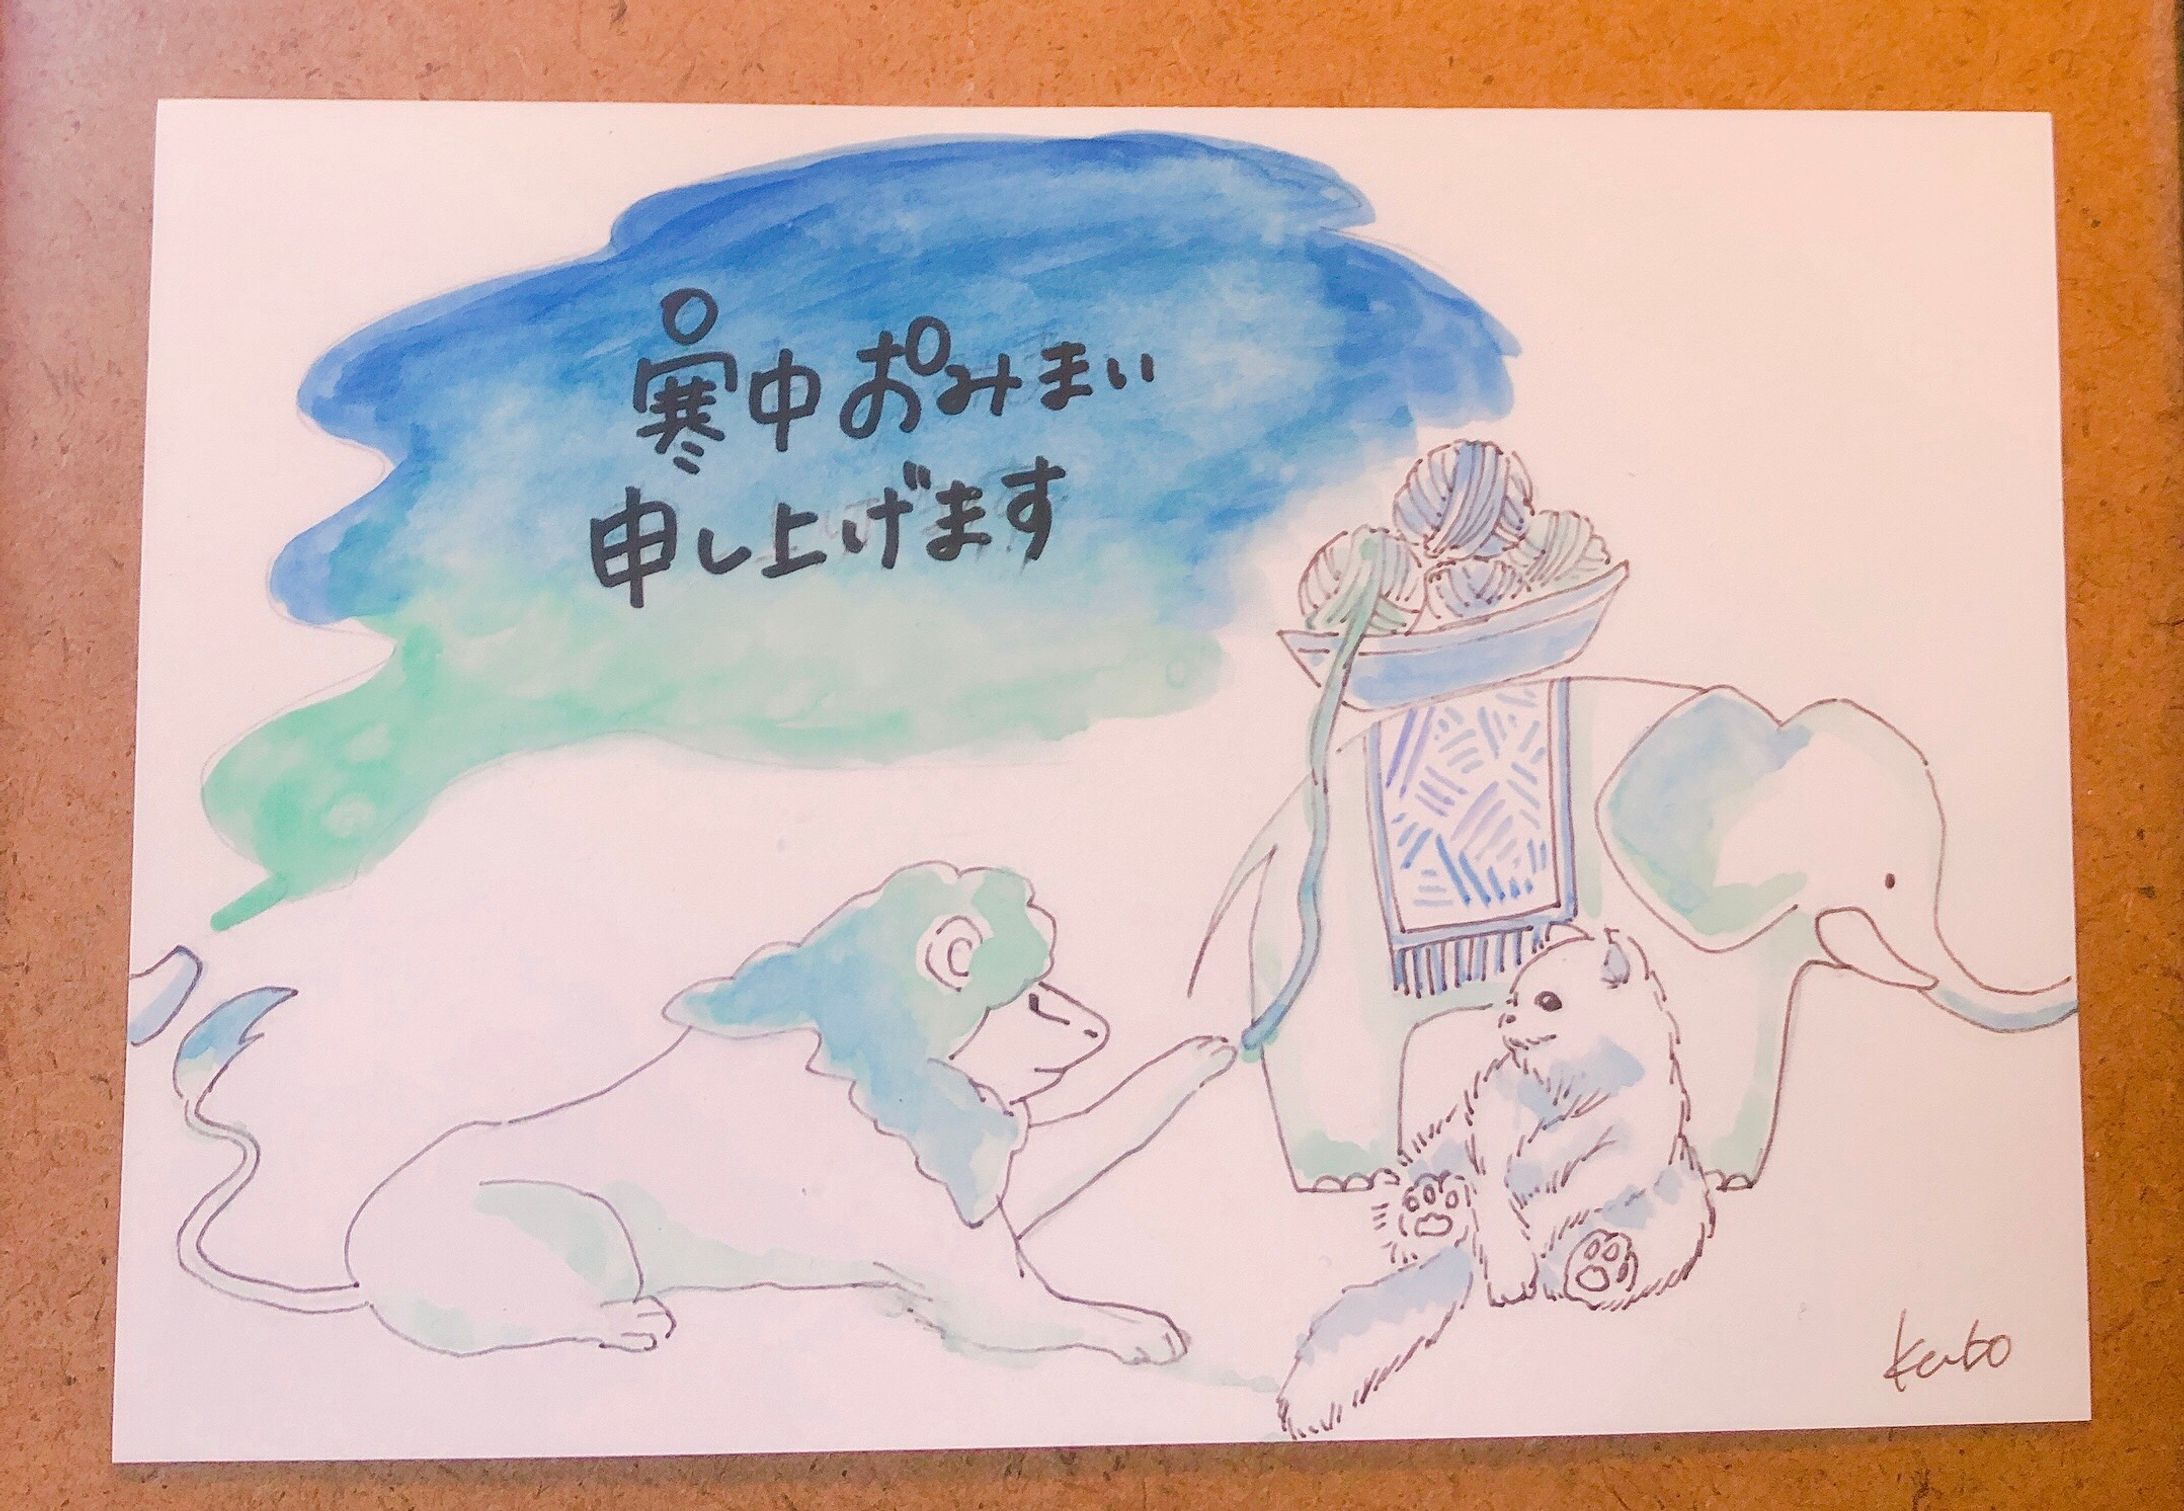 寒中おみまい
申し上げます
Kato